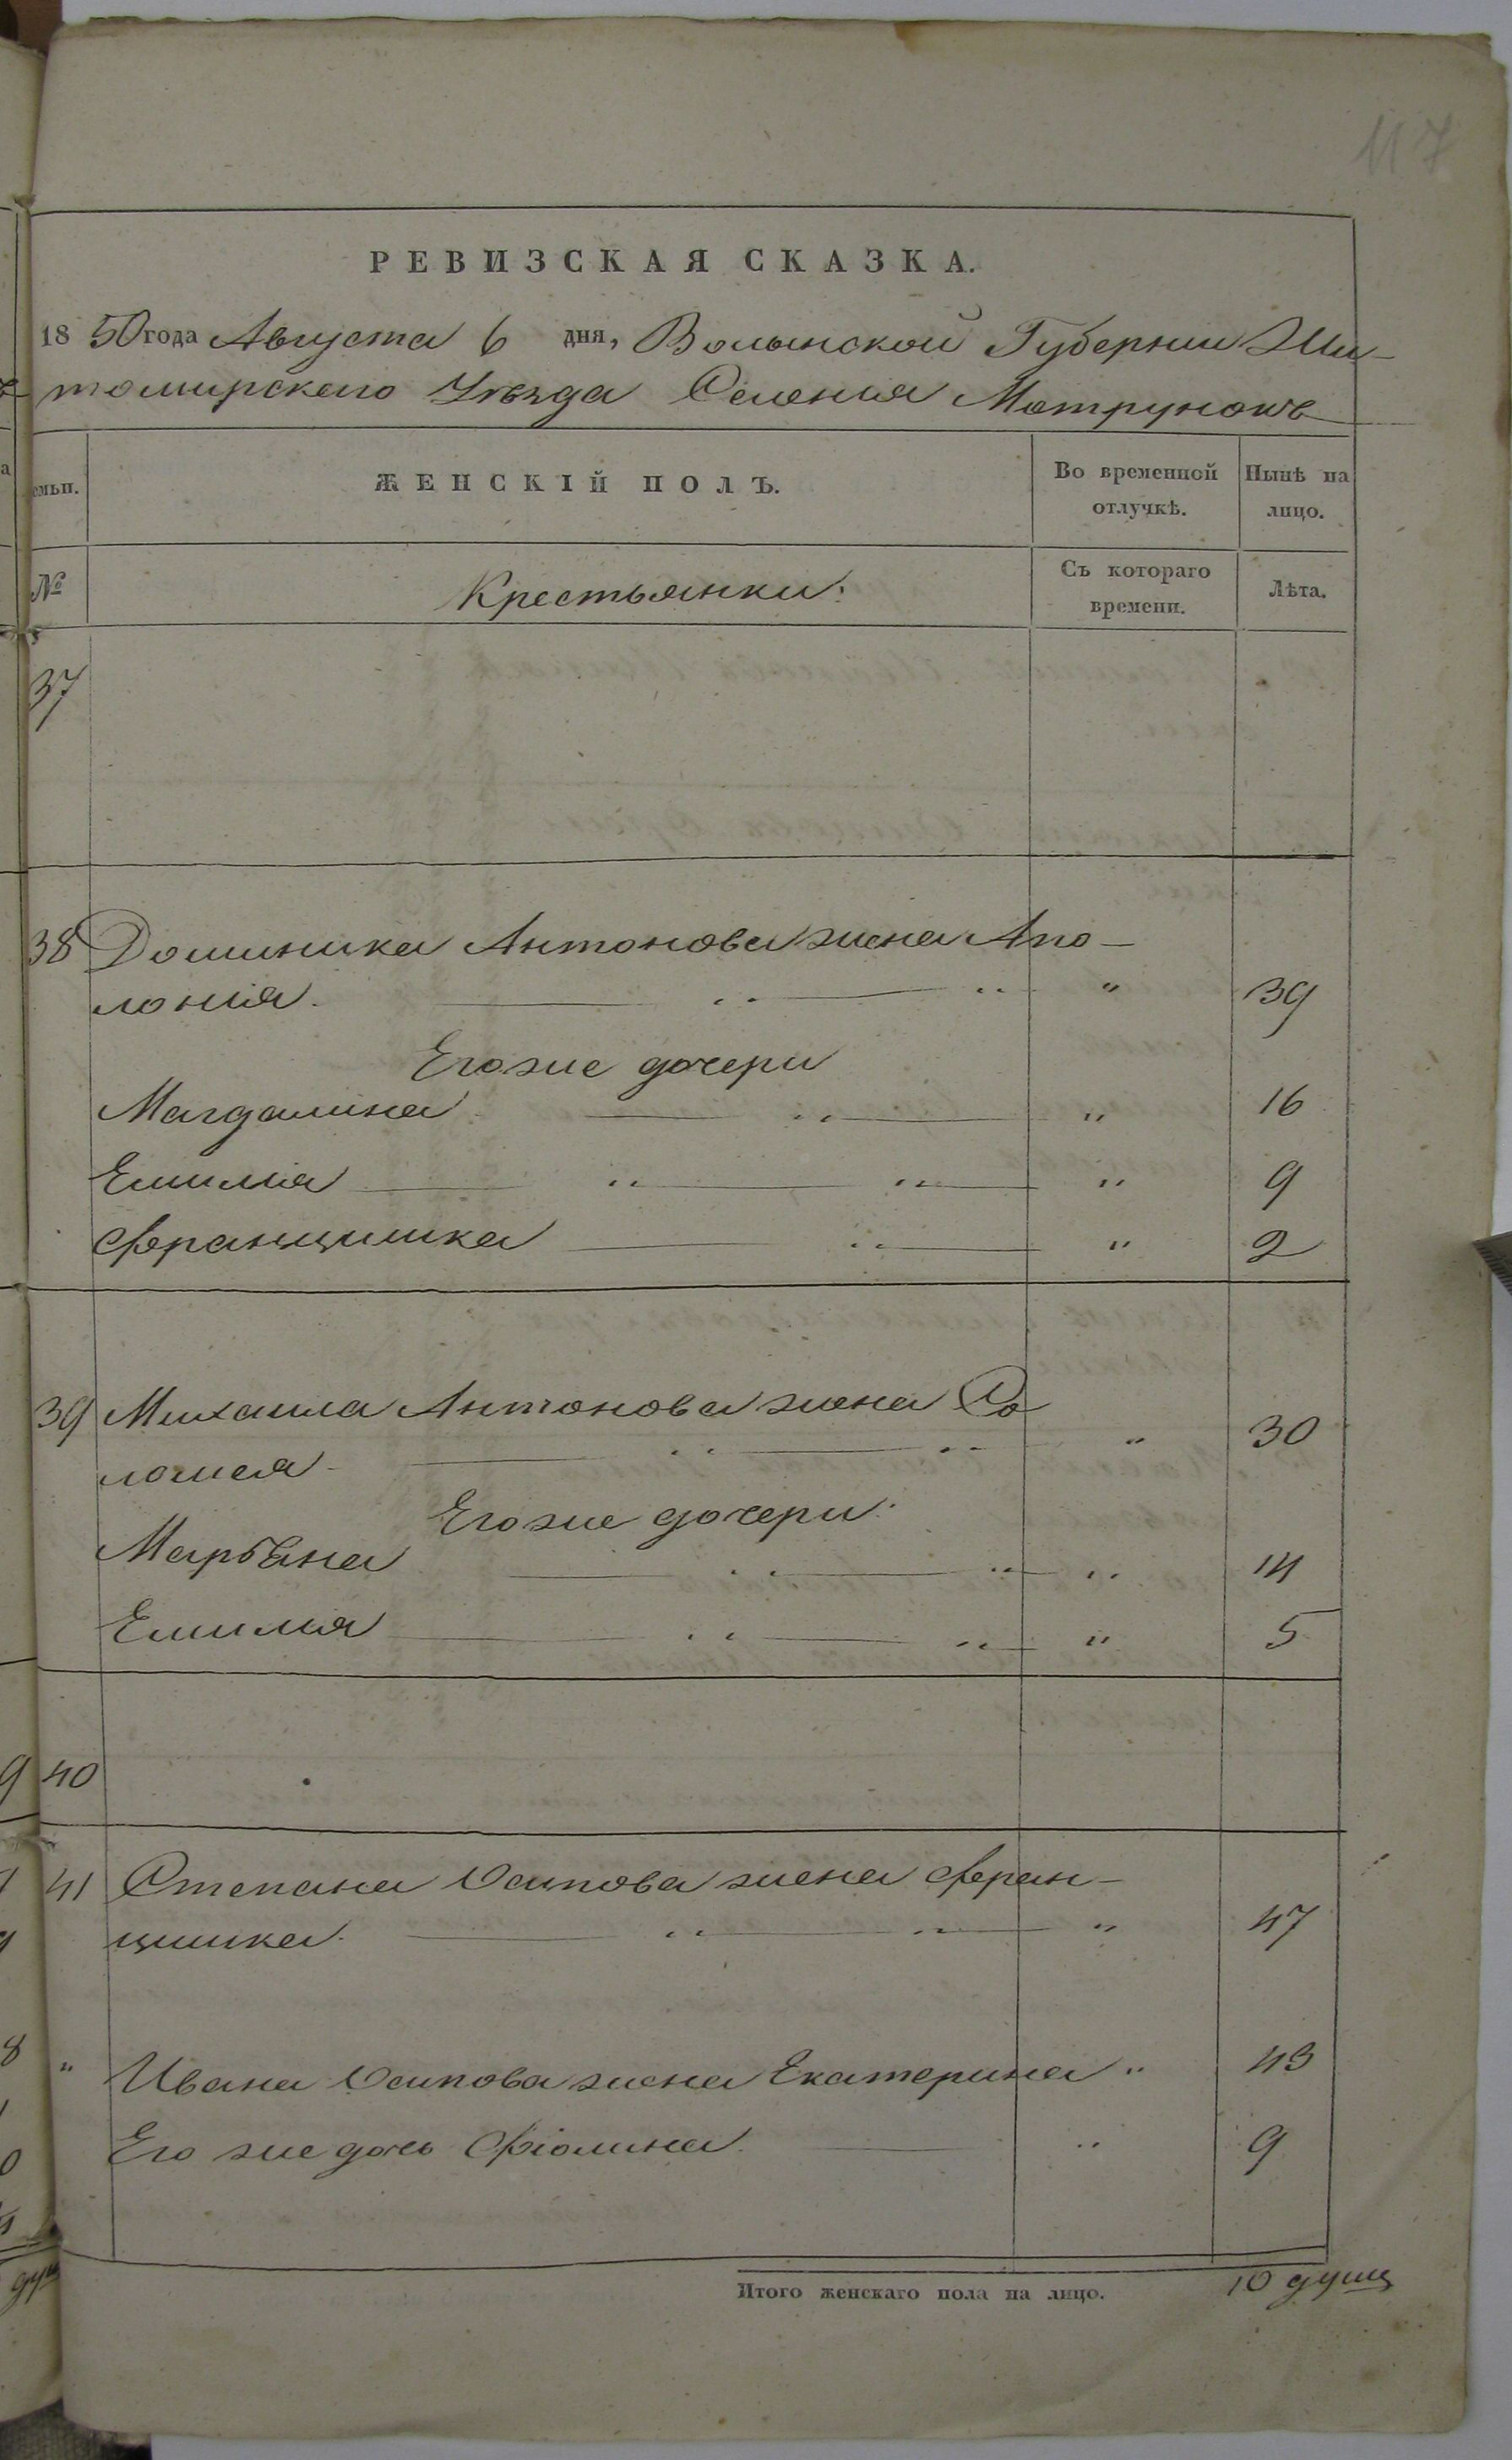 117
РЕВИЗСКАЯ СКАЗКА.
1850 года Августа 6 дня, Волынской Губернии Жи-
томирского Уѣзда Селения Мотрунокъ
емьи. ЖЕНСКІЙ ПОЛЪ. Во временной отлучкѣ. Нынѣ на лицо.
№ Крестьянки: Съ котораго времени. Лѣта.
37
38 Доминика Антонова жена Апо-
лония. " 39
Его же дочери
Магдалина " 16
Емилия " 9
Францишка " 2
39 Михаила Антонова жена Со
ломея " 30
Его же дочери:
Марьяна " 14
Емилия " 5
40
41 Степана Осипова жена Фран-
цишка. " 47
" Ивана Осипова жена Екатерина " 43
Его же дочь Фіолина " 9
Итого женскаго пола на лицо. 10 душ